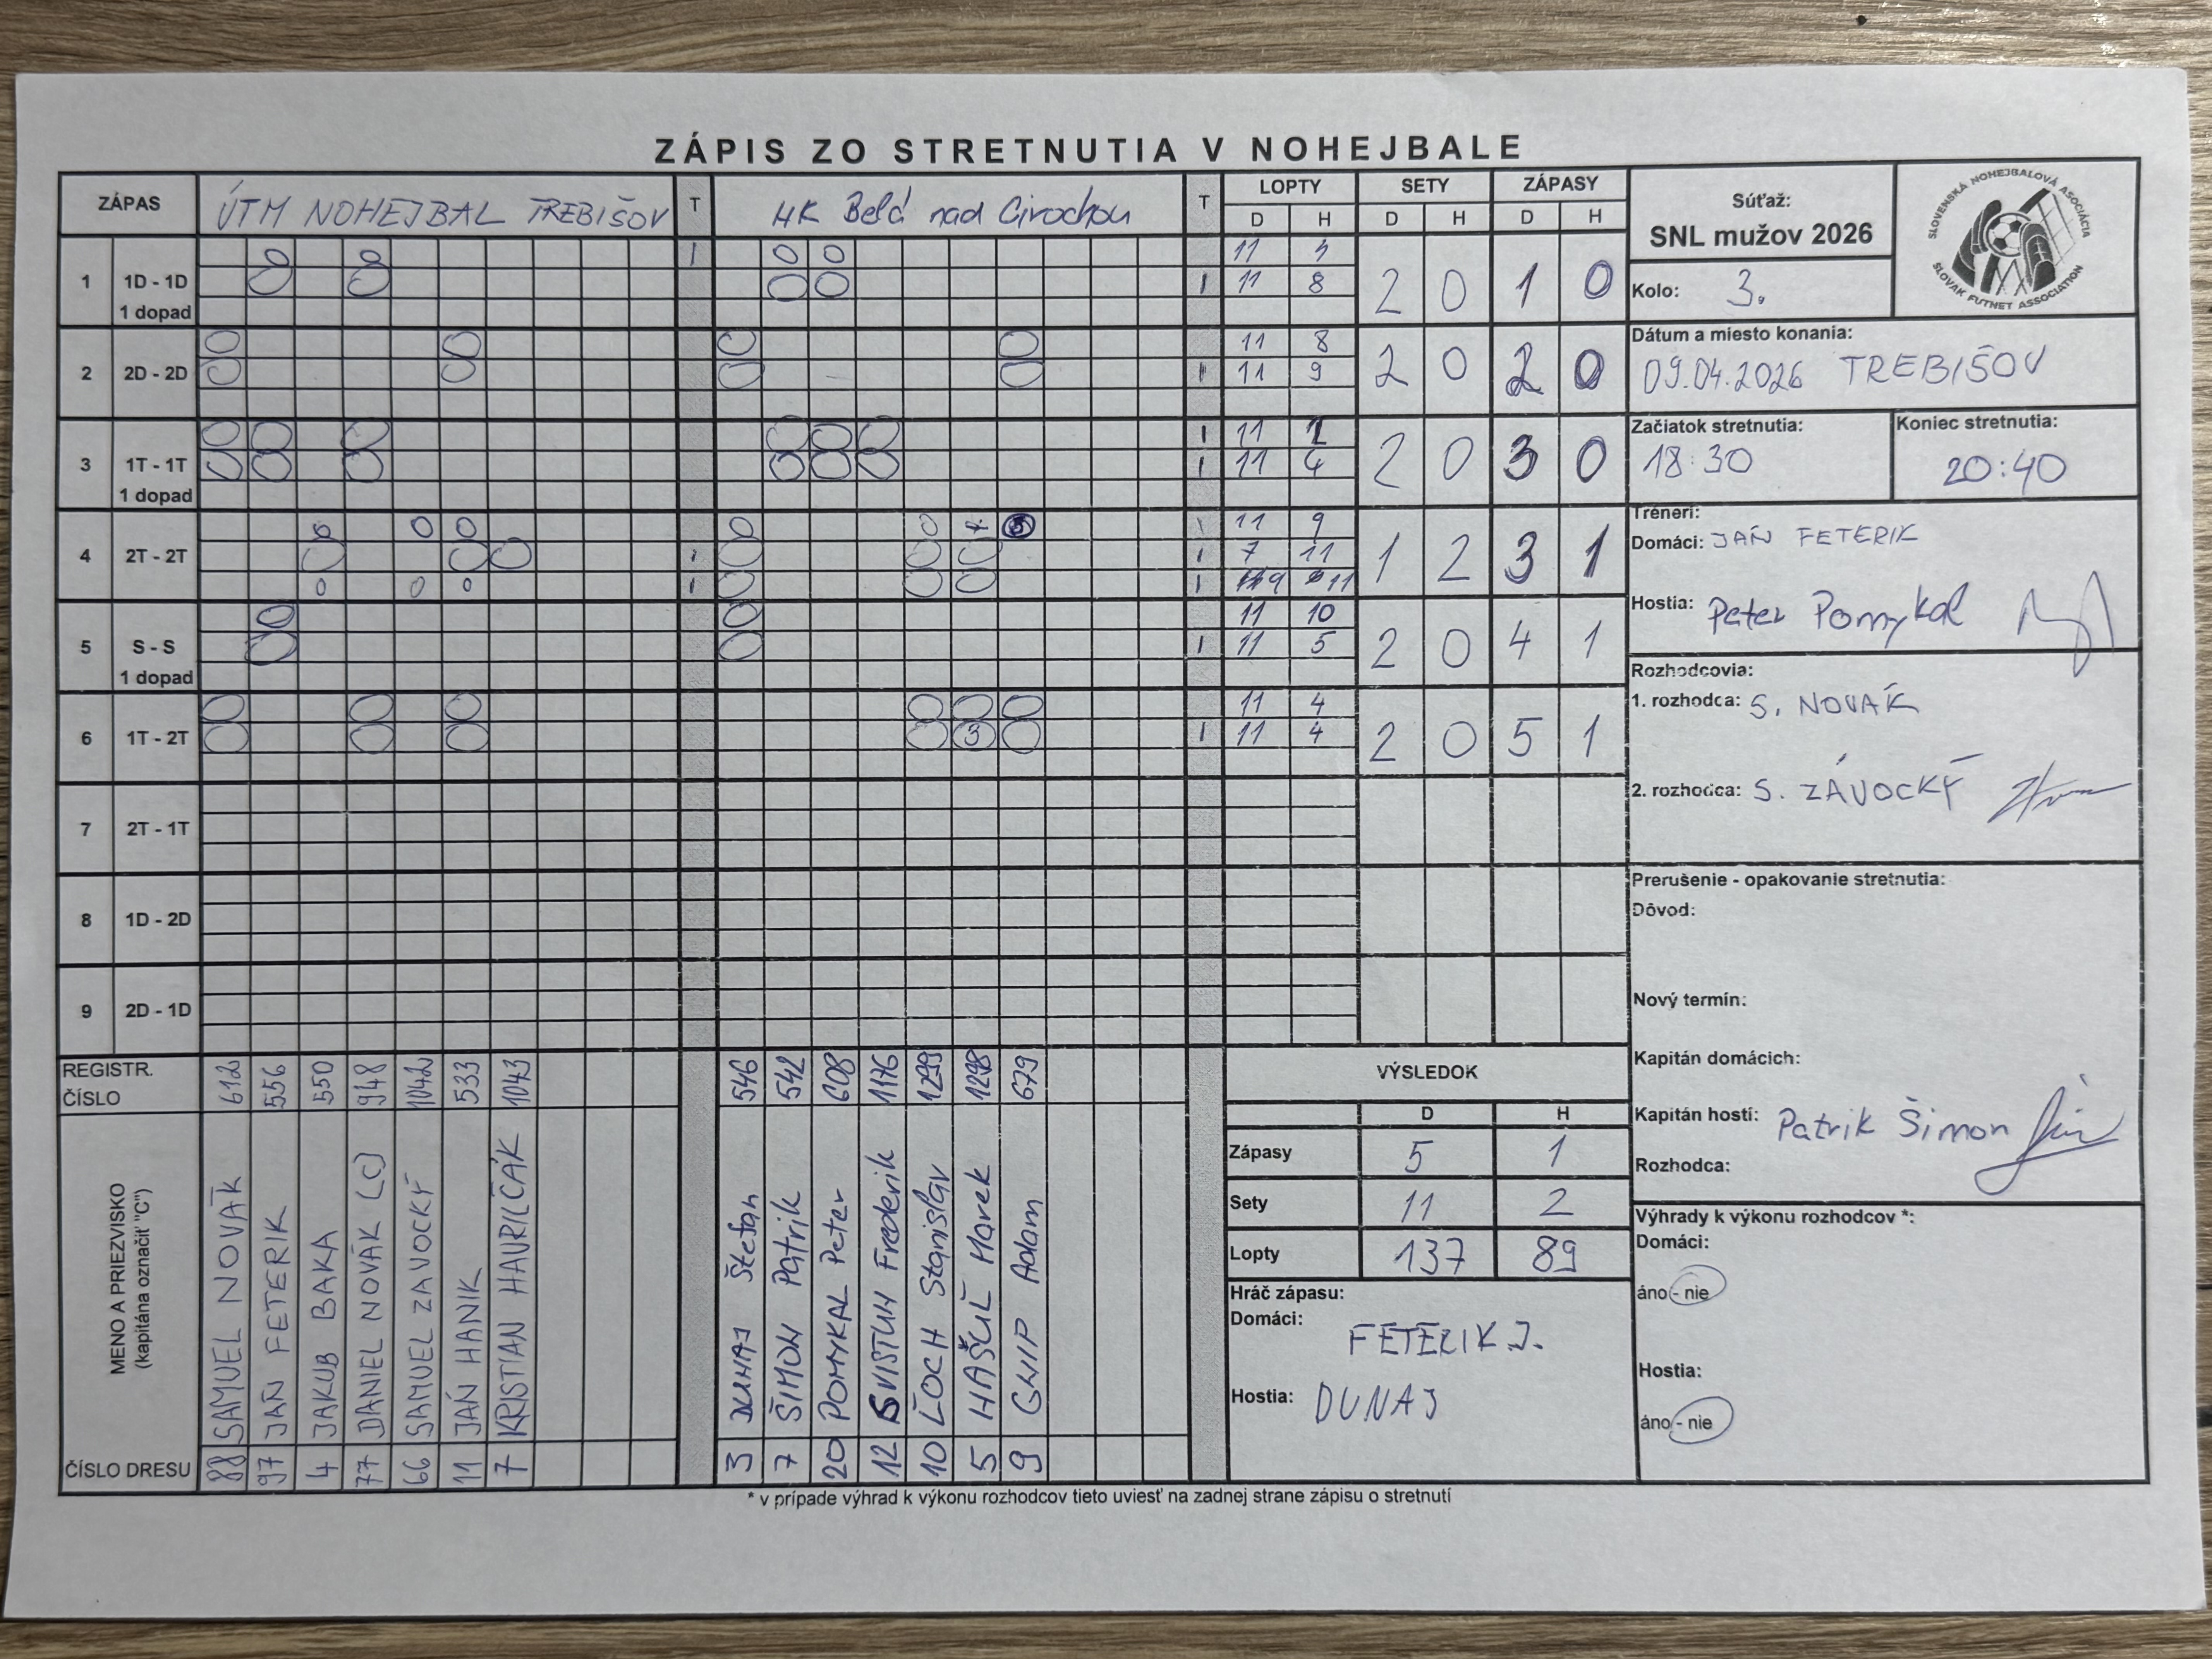 ZÁPIS ZO STRETNUTIA V NOHEJBALE
ZÁPAS ÚTM NOHEJBAL TREBIŠOV T HK Belá nad Cirochou T LOPTY SETY ZÁPASY
D H D H D H
1 1D - 1D 1 dopad
11 8
2 0 1 0
2 2D - 2D
11 8
11 9
2 0 2 0
3 1T - 1T 1 dopad
11 4
2 0 3 0
4 2T - 2T
11 9
7 11
9 11
1 2 3 1
5 S - S 1 dopad
11 10
11 5
2 0 4 1
6 1T - 2T
3
11 4
11 4
2 0 5 1
7 2T - 1T
8 1D - 2D
9 2D - 1D
REGISTR. ČÍSLO 612 556 550 948 1042 533 1043 546 542 608 1176 1299 1298 679
MENO A PRIEZVISKO
(kapitána označiť "C")
SAMUEL NOVÁK
JÁN FETERIK
JAKUB BAKA
DANIEL NOVÁK (C)
SAMUEL ZÁVOCKÝ
JÁN HANIK
KRISTIAN HAVRILČÁK
DUNAJ Štefan
ŠIMON Patrik
POMYKAL Peter
SVISTUN Frederik
ĽOCH Stanislav
HAŠUĽ Marek
GNIP Adam
ČÍSLO DRESU 88 97 4 77 66 11 7 3 7 20 12 10 5 9
* v prípade výhrad k výkonu rozhodcov tieto uviesť na zadnej strane zápisu o stretnutí
VÝSLEDOK
D H
Zápasy 5 1
Sety 11 2
Lopty 137 89
Hráč zápasu:
Domáci:
FETERIK J.
Hostia: DUNAJ
Súťaž:
SNL mužov 2026
Kolo: 3.
SLOVENSKÁ NOHEJBALOVÁ ASOCIÁCIA
SLOVAK FUTNET ASSOCIATION
Dátum a miesto konania:
09.04.2026 TREBIŠOV
Začiatok stretnutia:
18:30
Koniec stretnutia:
20:40
Tréneri:
Domáci: JÁN FETERIK
Hostia: Peter Pomykal
Rozhodcovia:
1. rozhodca: S. NOVÁK
2. rozhodca: S. ZÁVOCKÝ
Prerušenie - opakovanie stretnutia:
Dôvod:
Nový termín:
Kapitán domácich:
Kapitán hostí: Patrik Šimon
Rozhodca:
Výhrady k výkonu rozhodcov *:
Domáci:
áno - nie
Hostia:
áno - nie